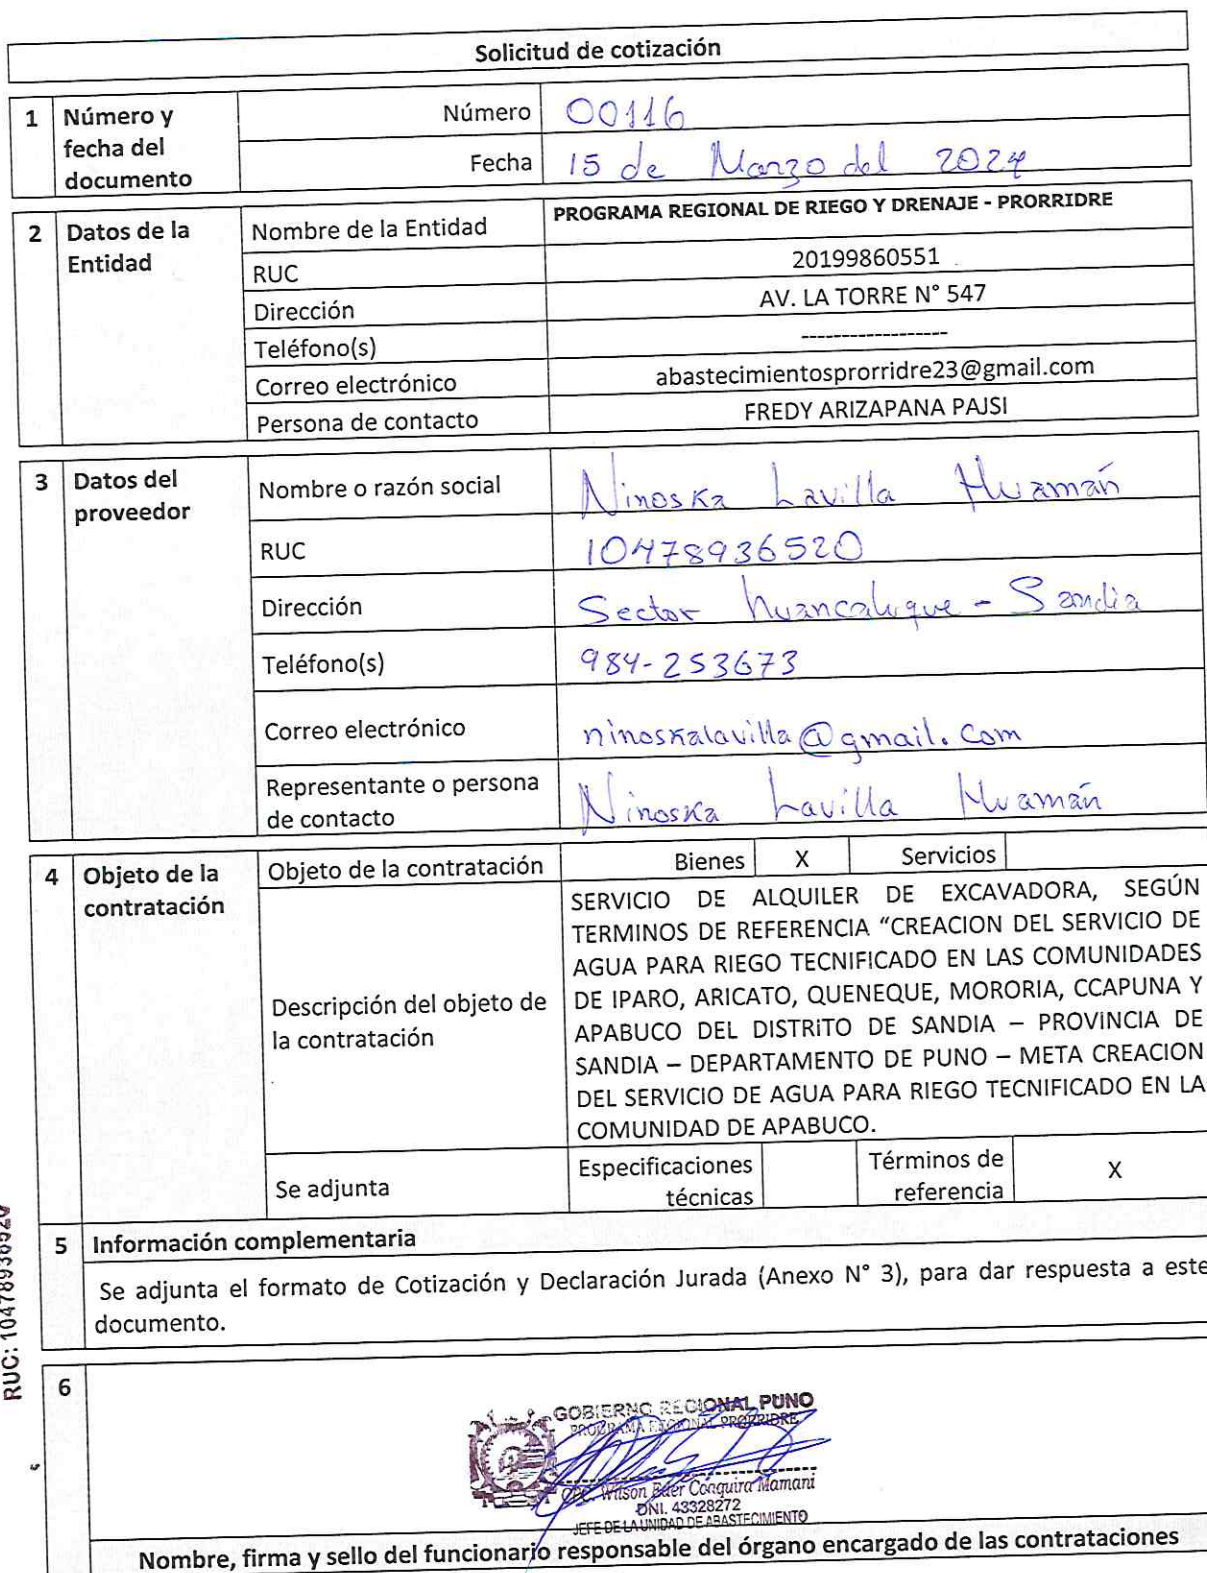 Solicitud de cotización
1 Número y fecha del documento
Número 00116
Fecha 15 de Marzo del 2024
2 Datos de la Entidad
Nombre de la Entidad PROGRAMA REGIONAL DE RIEGO Y DRENAJE - PRORRIDRE
RUC 20199860551
Dirección AV. LA TORRE N° 547
Teléfono(s) ------------------
Correo electrónico abastecimientosprorridre23@gmail.com
Persona de contacto FREDY ARIZAPANA PAJSI
3 Datos del proveedor
Nombre o razón social Ninoska Lavilla Huamán
RUC 10478936520
Dirección Sector huancaluque - Sandia
Teléfono(s) 984-253673
Correo electrónico ninoskalavilla@gmail.com
Representante o persona de contacto Ninoska Lavilla Huamán
4 Objeto de la contratación
Objeto de la contratación Bienes X Servicios
Descripción del objeto de la contratación
SERVICIO DE ALQUILER DE EXCAVADORA, SEGÚN
TERMINOS DE REFERENCIA “CREACION DEL SERVICIO DE
AGUA PARA RIEGO TECNIFICADO EN LAS COMUNIDADES
DE IPARO, ARICATO, QUENEQUE, MORORIA, CCAPUNA Y
APABUCO DEL DISTRITO DE SANDIA – PROVINCIA DE
SANDIA – DEPARTAMENTO DE PUNO – META CREACION
DEL SERVICIO DE AGUA PARA RIEGO TECNIFICADO EN LA
COMUNIDAD DE APABUCO.
Se adjunta Especificaciones técnicas Términos de referencia X
5 Información complementaria
Se adjunta el formato de Cotización y Declaración Jurada (Anexo N° 3), para dar respuesta a este
documento.
RUC: 10478936520
6
GOBIERNO REGIONAL PUNO
PROGRAMA REGIONAL PRORRIDRE
CPC. Wilson Eder Conquira Mamani
DNI. 43328272
JEFE DE LA UNIDAD DE ABASTECIMIENTO
Nombre, firma y sello del funcionario responsable del órgano encargado de las contrataciones